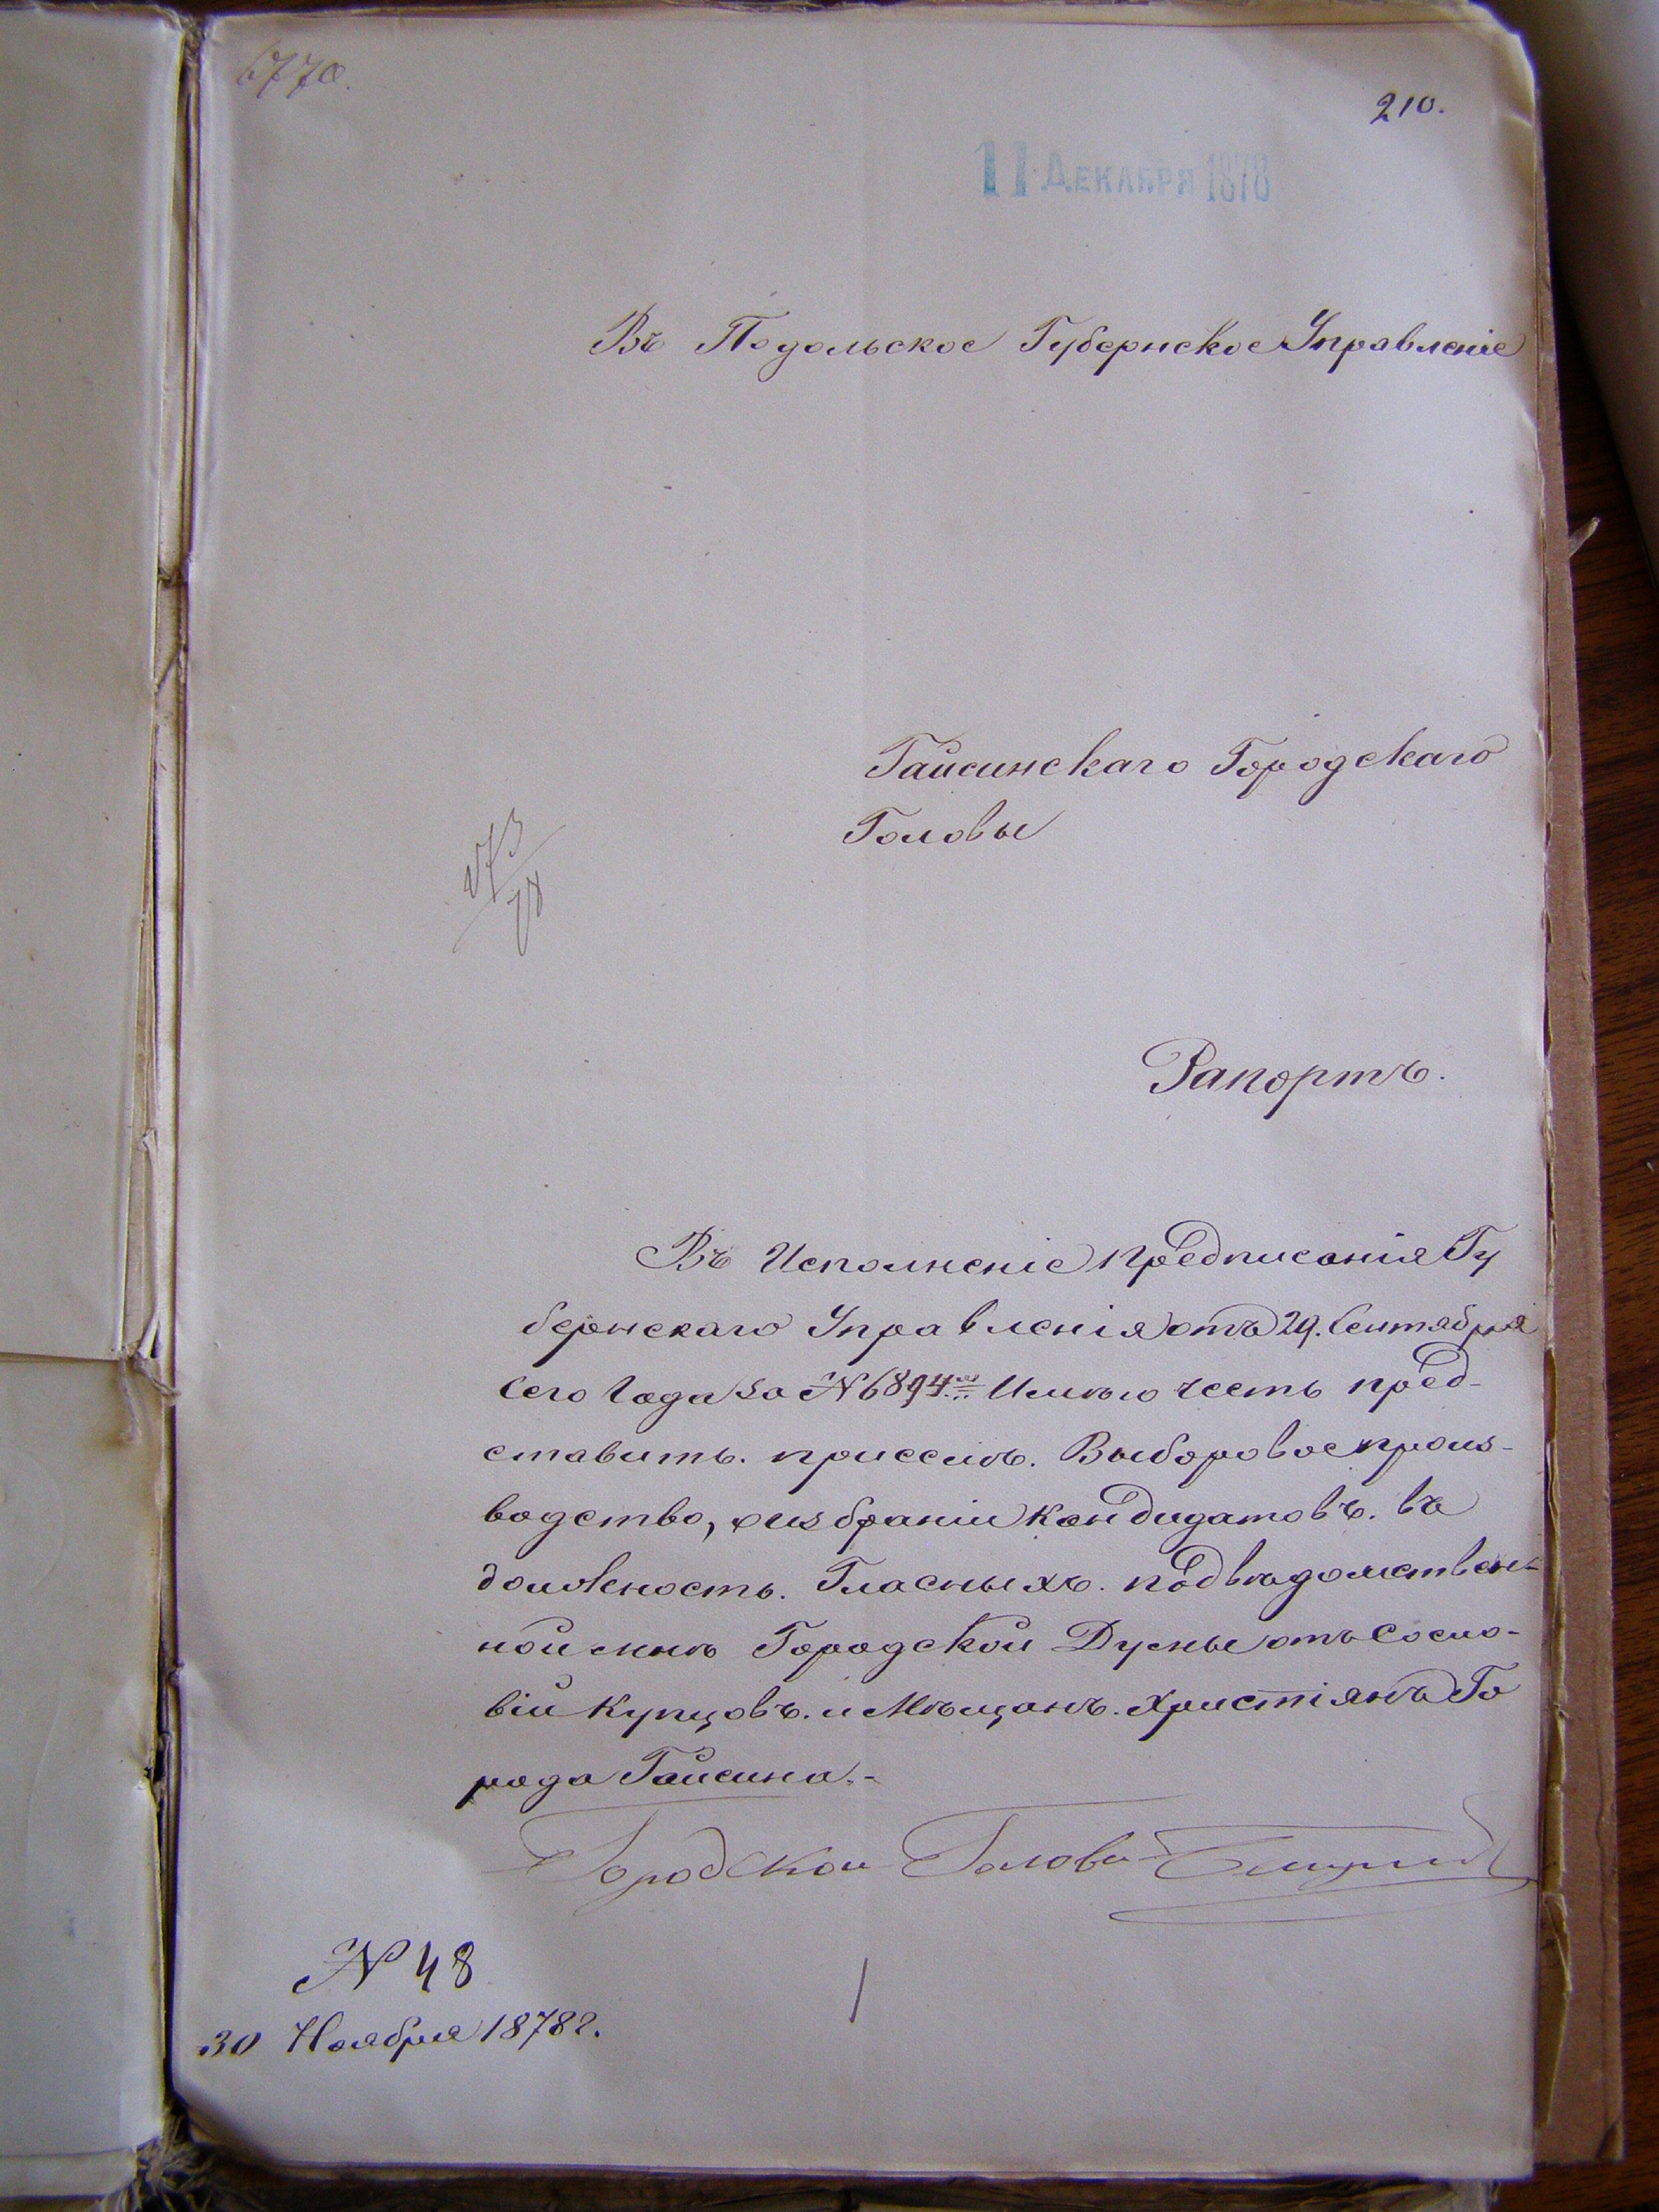 6770.
210.
11 ДЕКАБРЯ 1878
Въ Подольское Губернское Управленіе
Гайсинскаго Городскаго
Головы
Рапортъ.
Въ Исполненіе предписанія Гу
бернскаго Управленія отъ 29. Сентября
сего Года за № 6894. Имѣю честь пред-
ставить. присемъ. Выборовое произ-
водство, о избраніи Кандидатовъ. въ
должность. Гласныхъ. подвѣдомствен-
ной мнѣ Городской Думы отъ Сосло-
вій Купцовъ. и Мѣщанъ. Христіянъ Го
рода Гайсина.-
Городской Голова
№ 48
30 Ноября 1878 г.